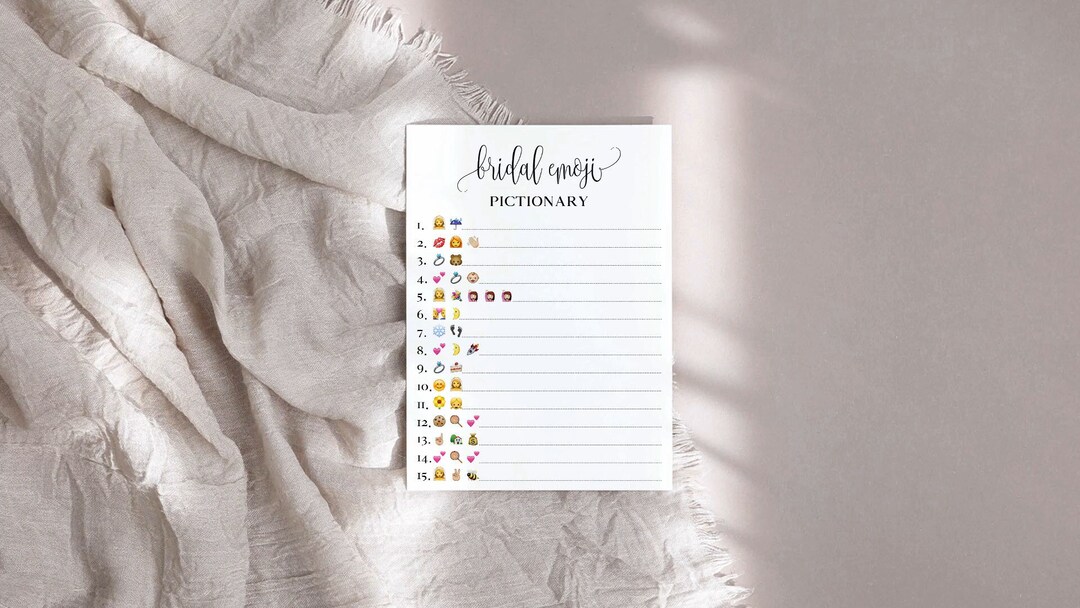 bridal emoji
PICTIONARY
1.
2.
3.
4.
5.
6.
7.
8.
9.
10.
11.
12.
13.
14.
15.